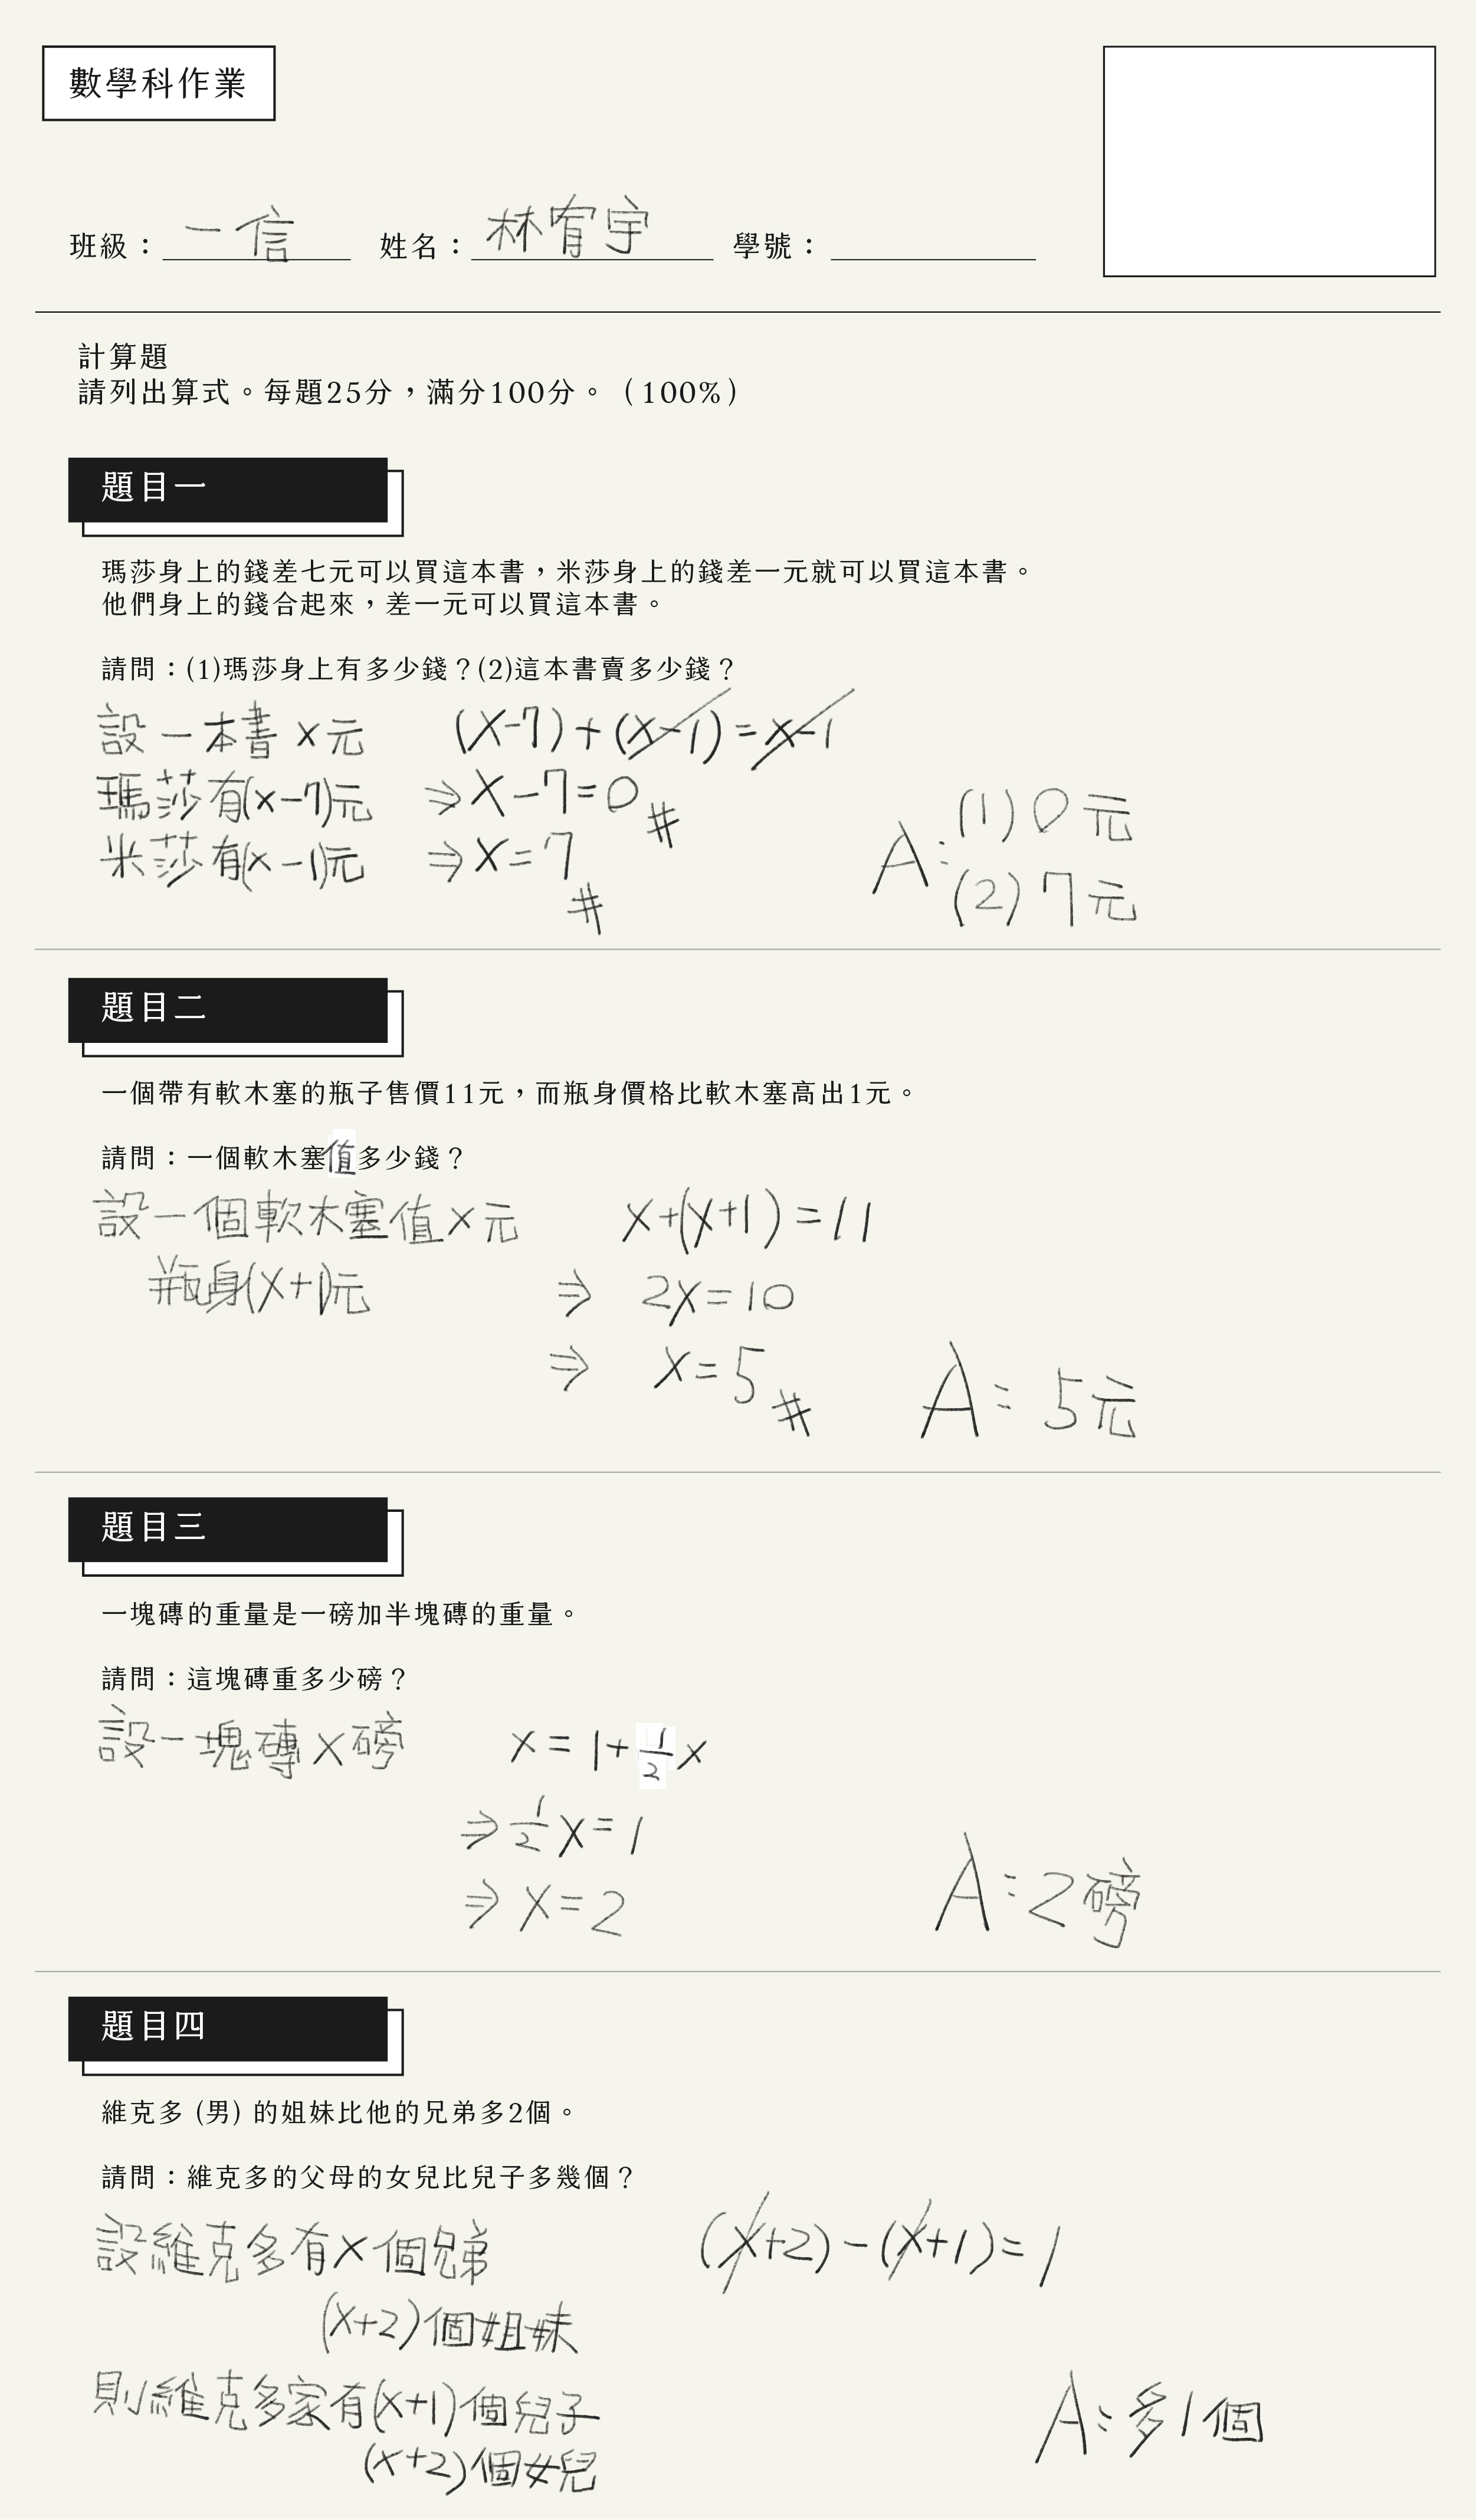 數學科作業
班級：一信 姓名：林宥宇 學號：
計算題
請列出算式。每題25分，滿分100分。（100%）
題目一
瑪莎身上的錢差七元可以買這本書，米莎身上的錢差一元就可以買這本書。
他們身上的錢合起來，差一元可以買這本書。
請問：(1)瑪莎身上有多少錢？(2)這本書賣多少錢？
設一本書x元 (x-7)+(x-1)=x-1
瑪莎有(x-7)元 ⇒x-7=0#
米莎有(x-1)元 ⇒x=7#
A:(1)0元
(2)7元
題目二
一個帶有軟木塞的瓶子售價11元，而瓶身價格比軟木塞高出1元。
請問：一個軟木塞值多少錢？
設一個軟木塞值x元 x+(x+1)=11
瓶身(x+1)元 ⇒ 2x=10
⇒ x=5# A:5元
題目三
一塊磚的重量是一磅加半塊磚的重量。
請問：這塊磚重多少磅？
設一塊磚x磅 x=1+1/2x
⇒1/2x=1
⇒x=2 A:2磅
題目四
維克多 (男) 的姐妹比他的兄弟多2個。
請問：維克多的父母的女兒比兒子多幾個？
設維克多有x個兄弟 (x+2)-(x+1)=1
(x+2)個姐妹
則維克多家有(x+1)個兒子 A:多1個
(x+2)個女兒